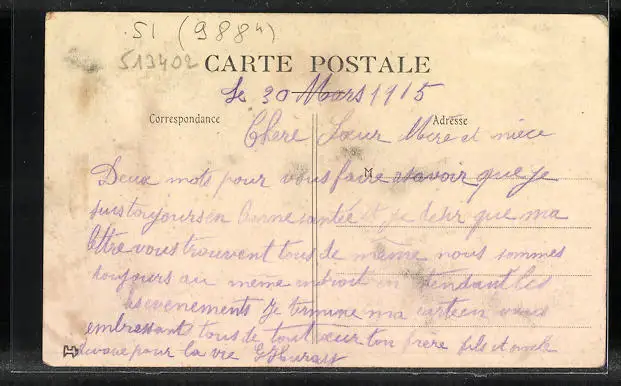 51 (988 h)
513402
CARTE POSTALE
le 30 Mars 1915
Correspondance
Adresse
Chere Sœur Mere et niece
Deux mots pour vous faire savoir que je
suis toujours en bonne santée et je desir que ma
lettre vous trouvent tous de même nous sommes
toujours au même endroit en tendant les
evenements Je termine ma carte en vous
embrassant tous de tout cœur ton frère fils et oncle
devoué pour la vie